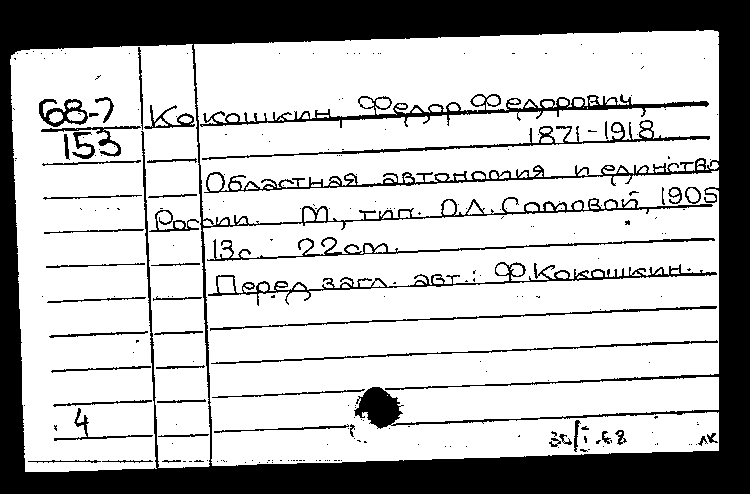 68-7
153
Кокошкин, Федор Федорович,
1871-1918.
Областная автономия и единство
России. М., тип. О.Л. Сомовой, 1905
13с. 22см.
Перед загл. авт.: Ф.Кокошкин.
4
30/I-68 лк